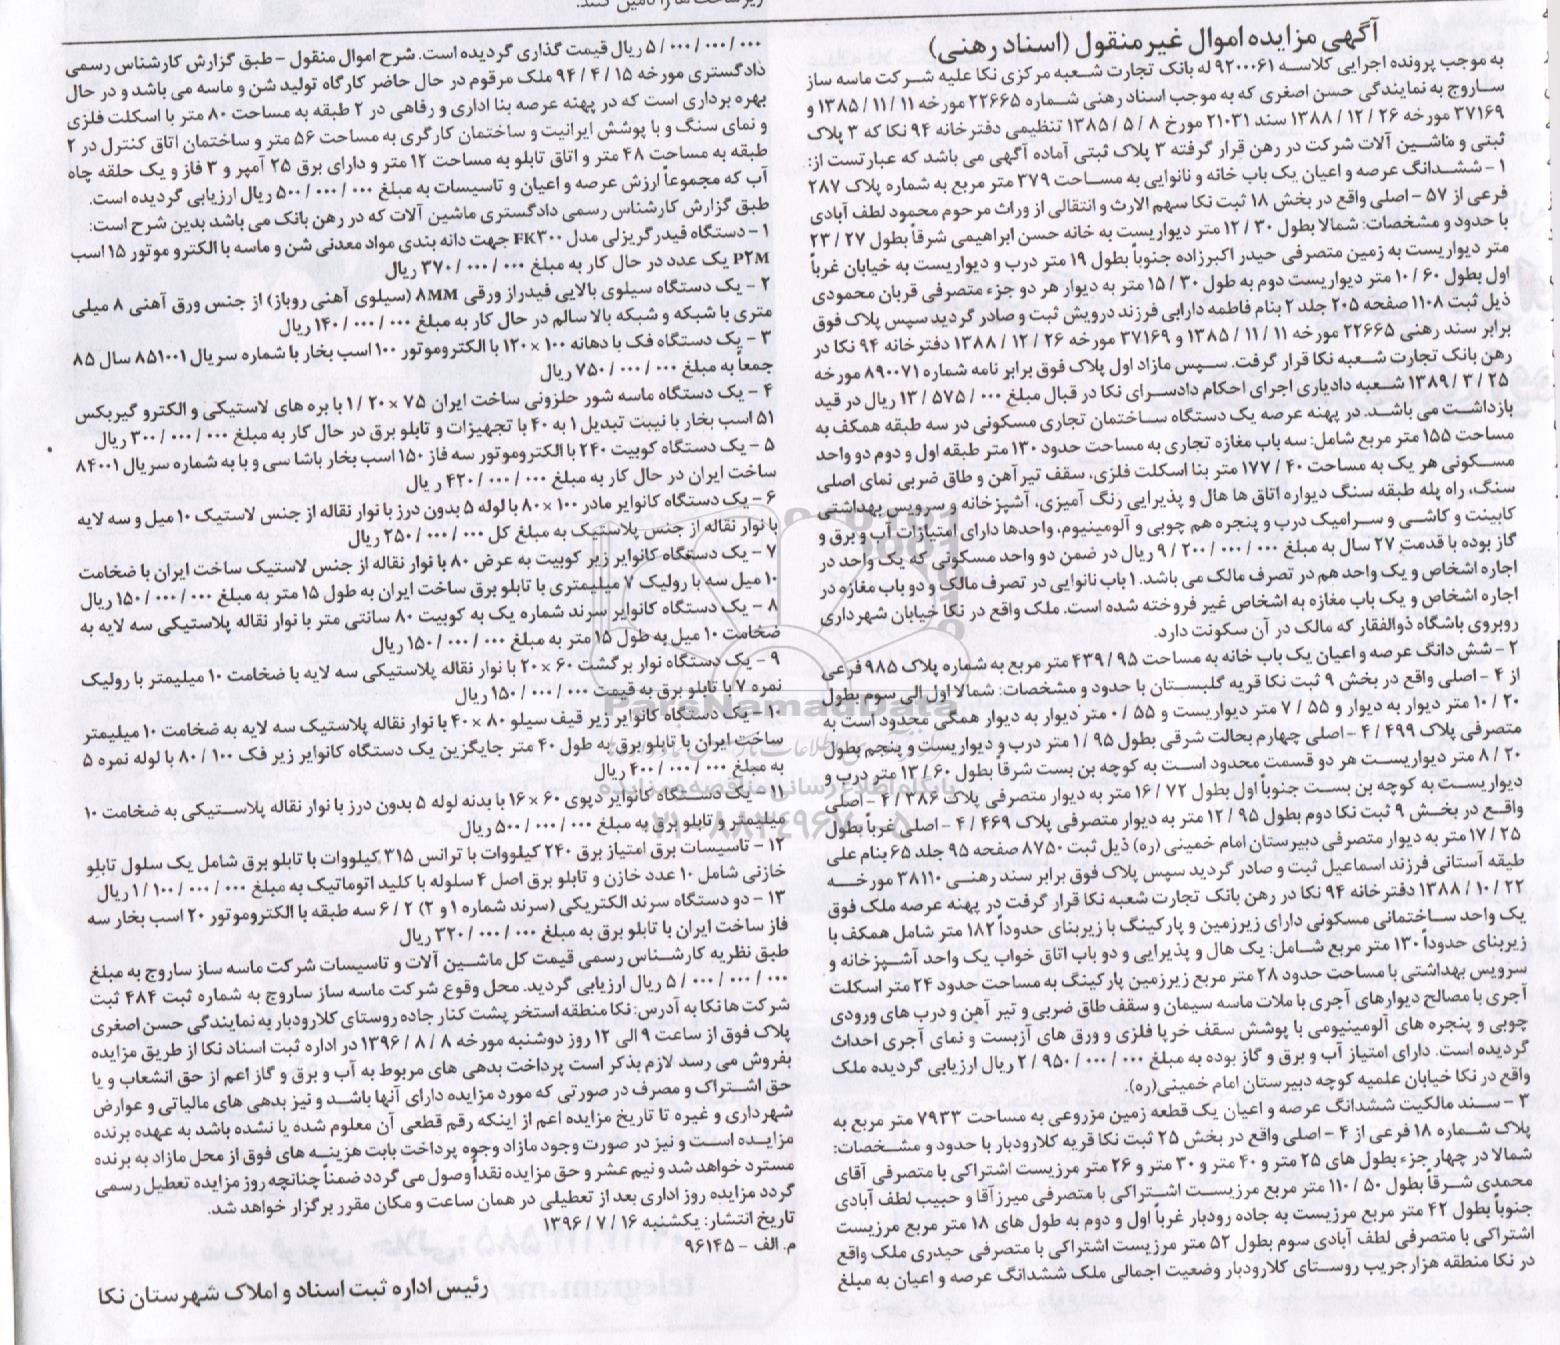 آگهی مزایده اموال غیر منقول (اسناد رهنی)
به موجب پرونده اجرایی کلاسه ۹۲۰۰۰۶۱ له بانک تجارت شعبه مرکزی نکا علیه شرکت ماسه ساز
ساروج به نمایندگی حسن اصغری که به موجب اسناد رهنی شماره ۲۲۶۶۵ مورخه ۱۱ / ۱۱ / ۱۳۸۵ و
۳۷۱۶۹ مورخه ۲۶ / ۱۲ / ۱۳۸۸ سند ۲۱۰۳۱ مورخ ۸ / ۵ / ۱۳۸۵ تنظیمی دفترخانه ۹۴ نکا که ۳ پلاک
ثبتی و ماشین آلات شرکت در رهن قرار گرفته ۳ پلاک ثبتی آماده آگهی می باشد که عبارتست از:
۱ - ششدانگ عرصه و اعیان یک باب خانه و نانوایی به مساحت ۳۷۹ متر مربع به شماره پلاک ۲۸۷
فرعی از ۵۷ - اصلی واقع در بخش ۱۸ ثبت نکا سهم الارث و انتقالی از وراث مرحوم محمود لطف آبادی
با حدود و مشخصات: شمالا بطول ۳۰ / ۱۲ متر دیواریست به خانه حسن ابراهیمی شرقاً بطول ۲۷ / ۲۳
متر دیواریست به زمین متصرفی حیدر اکبرزاده جنوباً بطول ۱۹ متر درب و دیواریست به خیابان غرباً
اول بطول ۶۰ / ۱۰ متر دیواریست دوم به طول ۳۰ / ۱۵ متر به دیوار هر دو جزء متصرفی قربان محمودی
ذیل ثبت ۱۱۰۸ صفحه ۲۰۵ جلد ۲ بنام فاطمه دارابی فرزند درویش ثبت و صادر گردید سپس پلاک فوق
برابر سند رهنی ۲۲۶۶۵ مورخه ۱۱ / ۱۱ / ۱۳۸۵ و ۳۷۱۶۹ مورخه ۲۶ / ۱۲ / ۱۳۸۸ دفترخانه ۹۴ نکا در
رهن بانک تجارت شعبه نکا قرار گرفت. سپس مازاد اول پلاک فوق برابر نامه شماره ۸۹۰۰۷۱ مورخه
۲۵ / ۳ / ۱۳۸۹ شعبه دادیاری اجرای احکام دادسرای نکا در قبال مبلغ ۰۰۰ / ۵۷۵ / ۱۳ ریال در قید
بازداشت می باشد. در پهنه عرصه یک دستگاه ساختمان تجاری مسکونی در سه طبقه همکف به
مساحت ۱۵۵ متر مربع شامل: سه باب مغازه تجاری به مساحت حدود ۱۳۰ متر طبقه اول و دوم دو واحد
مسکونی هر یک به مساحت ۴۰ / ۱۷۷ متر بنا اسکلت فلزی، سقف تیرآهن و طاق ضربی نمای اصلی
سنگ، راه پله طبقه سنگ دیواره اتاق ها هال و پذیرایی رنگ آمیزی، آشپزخانه و سرویس بهداشتی
کابینت و کاشی و سرامیک درب و پنجره هم چوبی و آلومینیوم، واحدها دارای امتیازات آب و برق و
گاز بوده با قدمت ۲۷ سال به مبلغ ۰۰۰ / ۰۰۰ / ۲۰۰ / ۹ ریال در ضمن دو واحد مسکونی که یک واحد در
اجاره اشخاص و یک واحد هم در تصرف مالک می باشد. ۱ باب نانوایی در تصرف مالک و دو باب مغازه در
اجاره اشخاص و یک باب مغازه به اشخاص غیر فروخته شده است. ملک واقع در نکا خیابان شهرداری
روبروی باشگاه ذوالفقار که مالک در آن سکونت دارد.
۲ - شش دانگ عرصه و اعیان یک باب خانه به مساحت ۹۵ / ۴۳۹ متر مربع به شماره پلاک ۹۸۵ فرعی
از ۴ - اصلی واقع در بخش ۹ ثبت نکا قریه گلبستان با حدود و مشخصات: شمالا اول الی سوم بطول
۲۰ / ۱۰ متر دیوار به دیوار و ۵۵ / ۷ متر دیواریست و ۵۵ / ۰ متر دیوار به دیوار همگی محدود است به
متصرفی پلاک ۴۹۹ / ۴ - اصلی چهارم بحالت شرقی بطول ۹۵ / ۱ متر درب و دیواریست و پنجم بطول
۲۰ / ۸ متر دیواریست هر دو قسمت محدود است به کوچه بن بست شرقاً بطول ۶۰ / ۱۳ متر درب و
دیواریست به کوچه بن بست جنوباً اول بطول ۷۲ / ۱۶ متر به دیوار متصرفی پلاک ۳۸۶ / ۴ - اصلی
واقع در بخش ۹ ثبت نکا دوم بطول ۹۵ / ۱۲ متر به دیوار متصرفی پلاک ۴۶۹ / ۴ - اصلی غرباً بطول
۲۵ / ۱۷ متر به دیوار متصرفی دبیرستان امام خمینی (ره) ذیل ثبت ۸۷۵۰ صفحه ۹۵ جلد ۶۵ بنام علی
طیقه آستانی فرزند اسماعیل ثبت و صادر گردید سپس پلاک فوق برابر سند رهنی ۳۸۱۱۰ مورخه
۲۲ / ۱۰ / ۱۳۸۸ دفترخانه ۹۴ نکا در رهن بانک تجارت شعبه نکا قرار گرفت در پهنه عرصه ملک فوق
یک واحد ساختمانی مسکونی دارای زیرزمین و پارکینگ با زیربنای حدوداً ۱۸۲ متر شامل همکف با
زیربنای حدوداً ۱۳۰ متر مربع شامل: یک هال و پذیرایی و دو باب اتاق خواب یک واحد آشپزخانه و
سرویس بهداشتی با مساحت حدود ۲۸ متر مربع زیرزمین پارکینگ به مساحت حدود ۲۴ متر اسکلت
آجری با مصالح دیوارهای آجری با ملات ماسه سیمان و سقف طاق ضربی و تیر آهن و درب های ورودی
چوبی و پنجره های آلومینیومی با پوشش سقف خرپا فلزی و ورق های آزبست و نمای آجری احداث
گردیده است. دارای امتیاز آب و برق و گاز بوده به مبلغ ۰۰۰ / ۰۰۰ / ۹۵۰ / ۲ ریال ارزیابی گردیده ملک
واقع در نکا خیابان علمیه کوچه دبیرستان امام خمینی(ره).
۳ - سند مالکیت ششدانگ عرصه و اعیان یک قطعه زمین مزروعی به مساحت ۷۹۳۳ متر مربع به
پلاک شماره ۱۸ فرعی از ۴ - اصلی واقع در بخش ۲۵ ثبت نکا قریه کلارودبار با حدود و مشخصات:
شمالا در چهار جزء بطول های ۲۵ متر و ۴۰ متر و ۳۰ متر و ۲۶ متر مرزیست اشتراکی با متصرفی آقای
محمدی شرقاً بطول ۵۰ / ۱۱۰ متر مربع مرزیست اشتراکی با متصرفی میرزآقا و حبیب لطف آبادی
جنوباً بطول ۴۲ متر مربع مرزیست به جاده رودبار غرباً اول و دوم به طول های ۱۸ متر مربع مرزیست
اشتراکی با متصرفی لطف آبادی سوم بطول ۵۲ متر مرزیست اشتراکی با متصرفی حیدری ملک واقع
در نکا منطقه هزارجریب روستای کلارودبار وضعیت اجمالی ملک ششدانگ عرصه و اعیان به مبلغ
۰۰۰ / ۰۰۰ / ۰۰۰ / ۵ ریال قیمت گذاری گردیده است. شرح اموال منقول - طبق گزارش کارشناس رسمی
دادگستری مورخه ۱۵ / ۴ / ۹۴ ملک مرقوم در حال حاضر کارگاه تولید شن و ماسه می باشد و در حال
بهره برداری است که در پهنه عرصه بنا اداری و رفاهی در ۲ طبقه به مساحت ۸۰ متر با اسکلت فلزی
و نمای سنگ و با پوشش ایرانیت و ساختمان کارگری به مساحت ۵۶ متر و ساختمان اتاق کنترل در ۲
طبقه به مساحت ۴۸ متر و اتاق تابلو به مساحت ۱۲ متر و دارای برق ۲۵ آمپر و ۳ فاز و یک حلقه چاه
آب که مجموعاً ارزش عرصه و اعیان و تاسیسات به مبلغ ۰۰۰ / ۰۰۰ / ۵۰۰ ریال ارزیابی گردیده است.
طبق گزارش کارشناس رسمی دادگستری ماشین آلات که در رهن بانک می باشد بدین شرح است:
۱ - دستگاه فیدر گریزلی مدل FK۳۰۰ جهت دانه بندی مواد معدنی شن و ماسه با الکترو موتور ۱۵ اسب
P۲M یک عدد در حال کار به مبلغ ۰۰۰ / ۰۰۰ / ۳۷۰ ریال
۲ - یک دستگاه سیلوی بالایی فیدر از ورقی ۸MM (سیلوی آهنی روباز) از جنس ورق آهنی ۸ میلی
متری با شبکه و شبکه بالا سالم در حال کار به مبلغ ۰۰۰ / ۰۰۰ / ۱۴۰ ریال
۳ - یک دستگاه فک با دهانه ۱۰۰ × ۱۲۰ با الکتروموتور ۱۰۰ اسب بخار با شماره سریال ۸۵۱۰۰۱ سال ۸۵
جمعاً به مبلغ ۰۰۰ / ۰۰۰ / ۷۵۰ ریال
۴ - یک دستگاه ماسه شور حلزونی ساخت ایران ۷۵ × ۲۰ / ۱ با بره های لاستیکی و الکترو گیربکس
۵۱ اسب بخار با نیبت تبدیل ۱ به ۴۰ با تجهیزات و تابلو برق در حال کار به مبلغ ۰۰۰ / ۰۰۰ / ۳۰۰ ریال
۵ - یک دستگاه کوبیت ۲۴۰ با الکتروموتور سه فاز ۱۵۰ اسب بخار باشا سی و با به شماره سریال ۸۴۰۰۱
ساخت ایران در حال کار به مبلغ ۰۰۰ / ۰۰۰ / ۴۲۰ ریال
۶ - یک دستگاه کانوایر مادر ۱۰۰ × ۸۰ با لوله ۵ بدون درز با نوار نقاله از جنس لاستیک ۱۰ میل و سه لایه
با نوار نقاله از جنس پلاستیک به مبلغ کل ۰۰۰ / ۰۰۰ / ۲۵۰ ریال
۷ - یک دستگاه کانوایر زیر کوبیت به عرض ۸۰ با نوار نقاله از جنس لاستیک ساخت ایران با ضخامت
۱۰ میل سه با رولیک ۷ میلیمتری با تابلو برق ساخت ایران به طول ۱۵ متر به مبلغ ۰۰۰ / ۰۰۰ / ۱۵۰ ریال
۸ - یک دستگاه کانوایر سرند شماره یک به کوبیت ۸۰ سانتی متر با نوار نقاله پلاستیکی سه لایه به
ضخامت ۱۰ میل به طول ۱۵ متر به مبلغ ۰۰۰ / ۰۰۰ / ۱۵۰ ریال
۹ - یک دستگاه نوار برگشت ۶۰ × ۲۰ با نوار نقاله پلاستیکی سه لایه با ضخامت ۱۰ میلیمتر با رولیک
نمره ۷ با تابلو برق به قیمت ۰۰۰ / ۰۰۰ / ۱۵۰ ریال
۱۰ - یک دستگاه کانوایر زیر قیف سیلو ۸۰ × ۴۰ با نوار نقاله پلاستیک سه لایه به ضخامت ۱۰ میلیمتر
ساخت ایران با تابلو برق به طول ۴۰ متر جایگزین یک دستگاه کانوایر زیر فک ۱۰۰ / ۸۰ با لوله نمره ۵
به مبلغ ۰۰۰ / ۰۰۰ / ۴۰۰ ریال
۱۱ - یک دستگاه کانوایر دپوی ۶۰ × ۱۶ با بدنه لوله ۵ بدون درز با نوار نقاله پلاستیکی به ضخامت ۱۰
میلیمتر و تابلو برق به مبلغ ۰۰۰ / ۰۰۰ / ۵۰۰ ریال
۱۲ - تاسیسات برق امتیاز برق ۲۴۰ کیلووات با ترانس ۳۱۵ کیلووات با تابلو برق شامل یک سلول تابلو
خازنی شامل ۱۰ عدد خازن و تابلو برق اصل ۴ سلوله با کلید اتوماتیک به مبلغ ۰۰۰ / ۰۰۰ / ۱۰۰ / ۱ ریال
۱۳ - دو دستگاه سرند الکتریکی (سرند شماره ۱ و ۲) ۲ / ۶ سه طبقه با الکتروموتور ۲۰ اسب بخار سه
فاز ساخت ایران با تابلو برق به مبلغ ۰۰۰ / ۰۰۰ / ۳۲۰ ریال
طبق نظریه کارشناس رسمی قیمت کل ماشین آلات و تاسیسات شرکت ماسه ساز ساروج به مبلغ
۰۰۰ / ۰۰۰ / ۰۰۰ / ۵ ریال ارزیابی گردید. محل وقوع شرکت ماسه ساز ساروج به شماره ثبت ۴۸۴ ثبت
شرکت ها نکا به آدرس: نکا منطقه استخر پشت کنار جاده روستای کلارودبار به نمایندگی حسن اصغری
پلاک فوق از ساعت ۹ الی ۱۲ روز دوشنبه مورخه ۸ / ۸ / ۱۳۹۶ در اداره ثبت اسناد نکا از طریق مزایده
بفروش می رسد لازم بذکر است پرداخت بدهی های مربوط به آب و برق و گاز اعم از حق انشعاب و یا
حق اشتراک و مصرف در صورتی که مورد مزایده دارای آنها باشد و نیز بدهی های مالیاتی و عوارض
شهرداری و غیره تا تاریخ مزایده اعم از اینکه رقم قطعی آن معلوم شده یا نشده باشد به عهده برنده
مزایده است و نیز در صورت وجود مازاد وجوه پرداخت بابت هزینه های فوق از محل مازاد به برنده
مسترد خواهد شد و نیم عشر و حق مزایده نقداً وصول می گردد ضمناً چنانچه روز مزایده تعطیل رسمی
گردد مزایده روز اداری بعد از تعطیلی در همان ساعت و مکان مقرر برگزار خواهد شد.
تاریخ انتشار: یکشنبه ۱۶ / ۷ / ۱۳۹۶
م. الف - ۹۶۱۴۵
رئیس اداره ثبت اسناد و املاک شهرستان نکا
ParsNamadData
پایگاه اطلاع رسانی مناقصه و مزایده